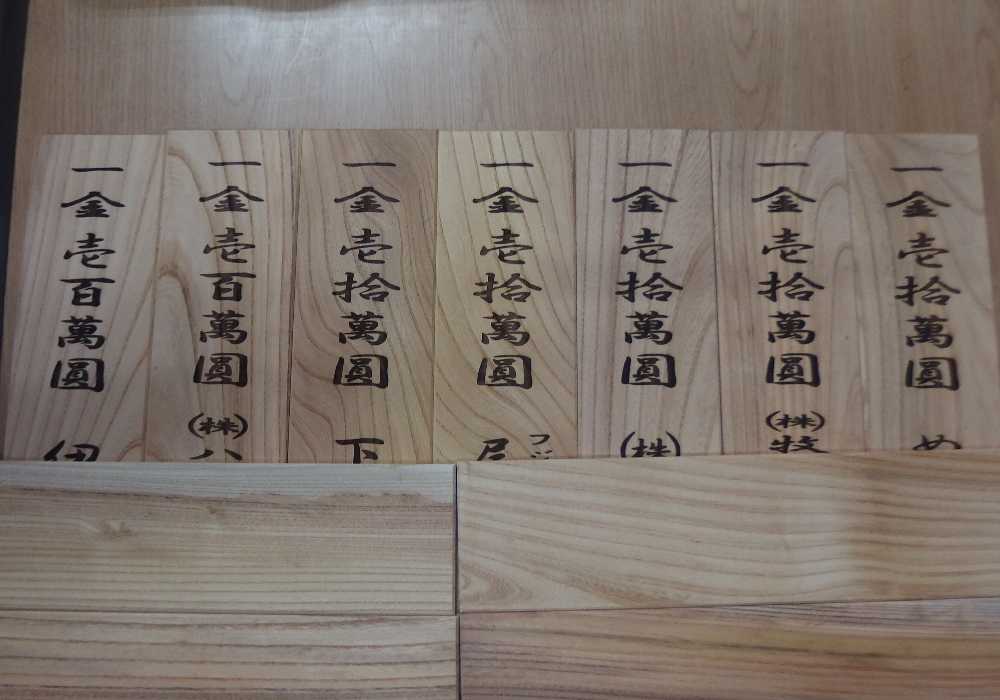 一金壱拾萬圓
め
一金壱拾萬圓
㈱牧
一金壱拾萬圓
㈱
一金壱拾萬圓
一金壱拾萬圓
下
一金壱百萬圓
㈱八
一金壱百萬圓
伊